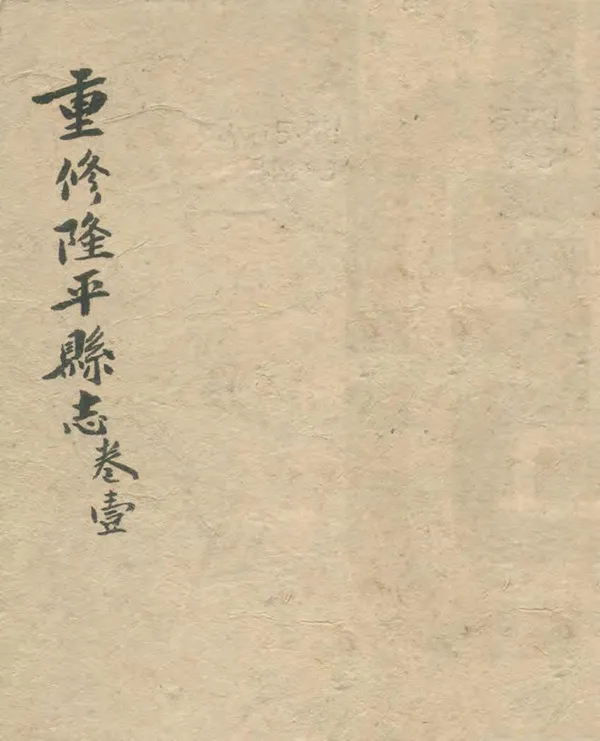 重修隆平縣志卷壹